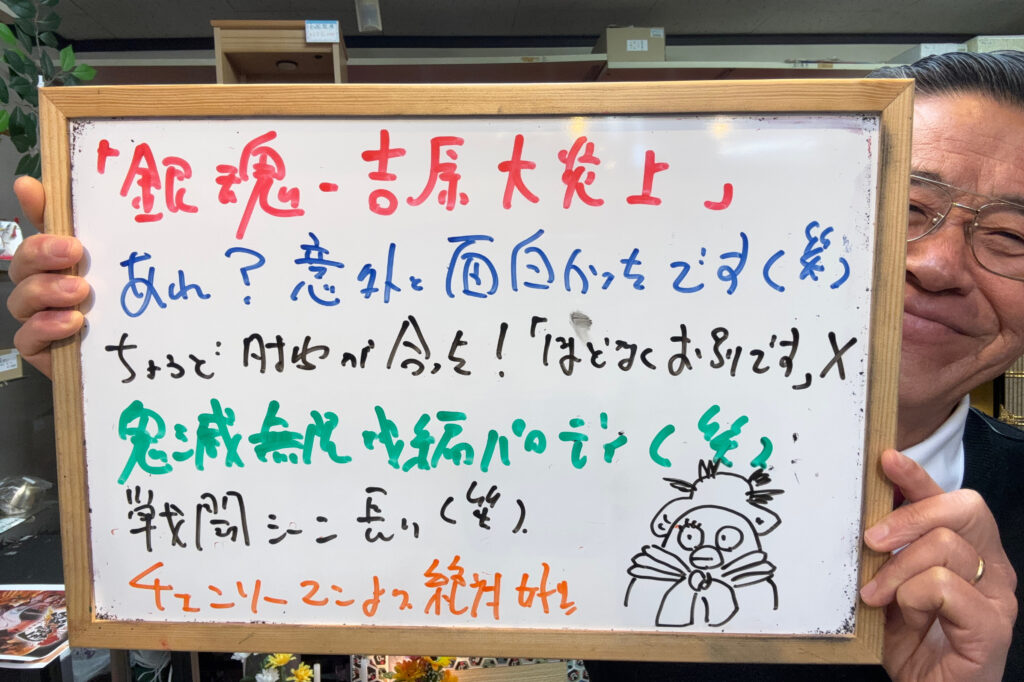 「銀魂-吉原大炎上」
あれ？意外と面白かったです(笑)
ちょうど時間が合った！「ほどなくお別れです」X
鬼滅無限城編パロディ(笑)
戦闘シーン長い(笑)
チェンソーマンよりは絶対好き